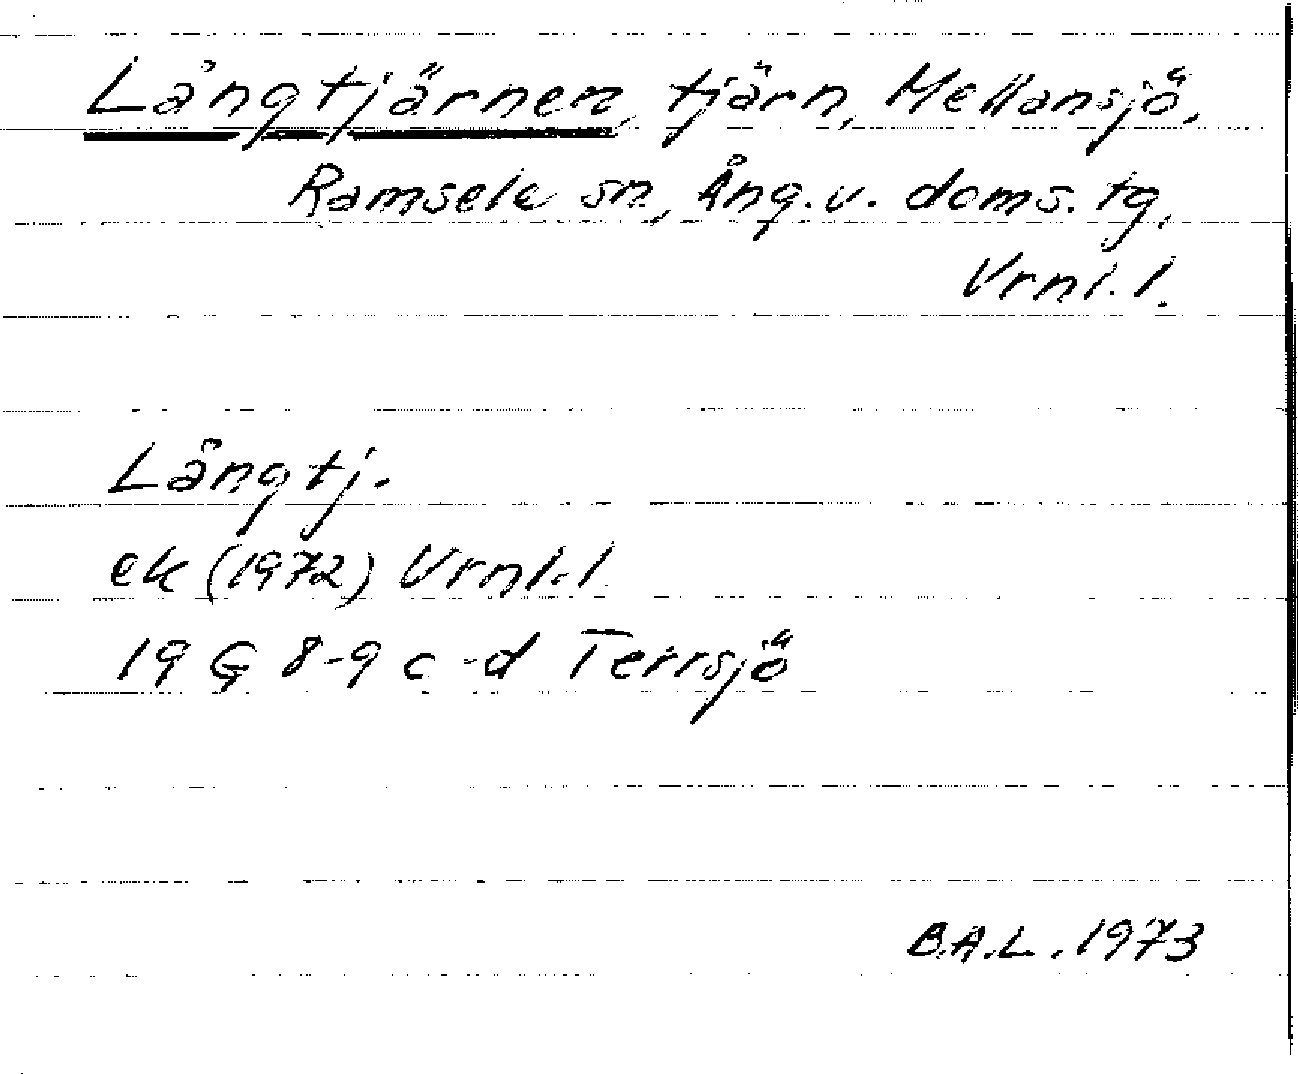 Långtjärnen, tjärn, Mellansjö,
Ramsele sn, Ång. v. doms. tg,
Vrnl. l.
Långtj.
ek (1972) Vrnl. l.
19 G 8-9 c-d Terrsjö
B.A.L. 1973